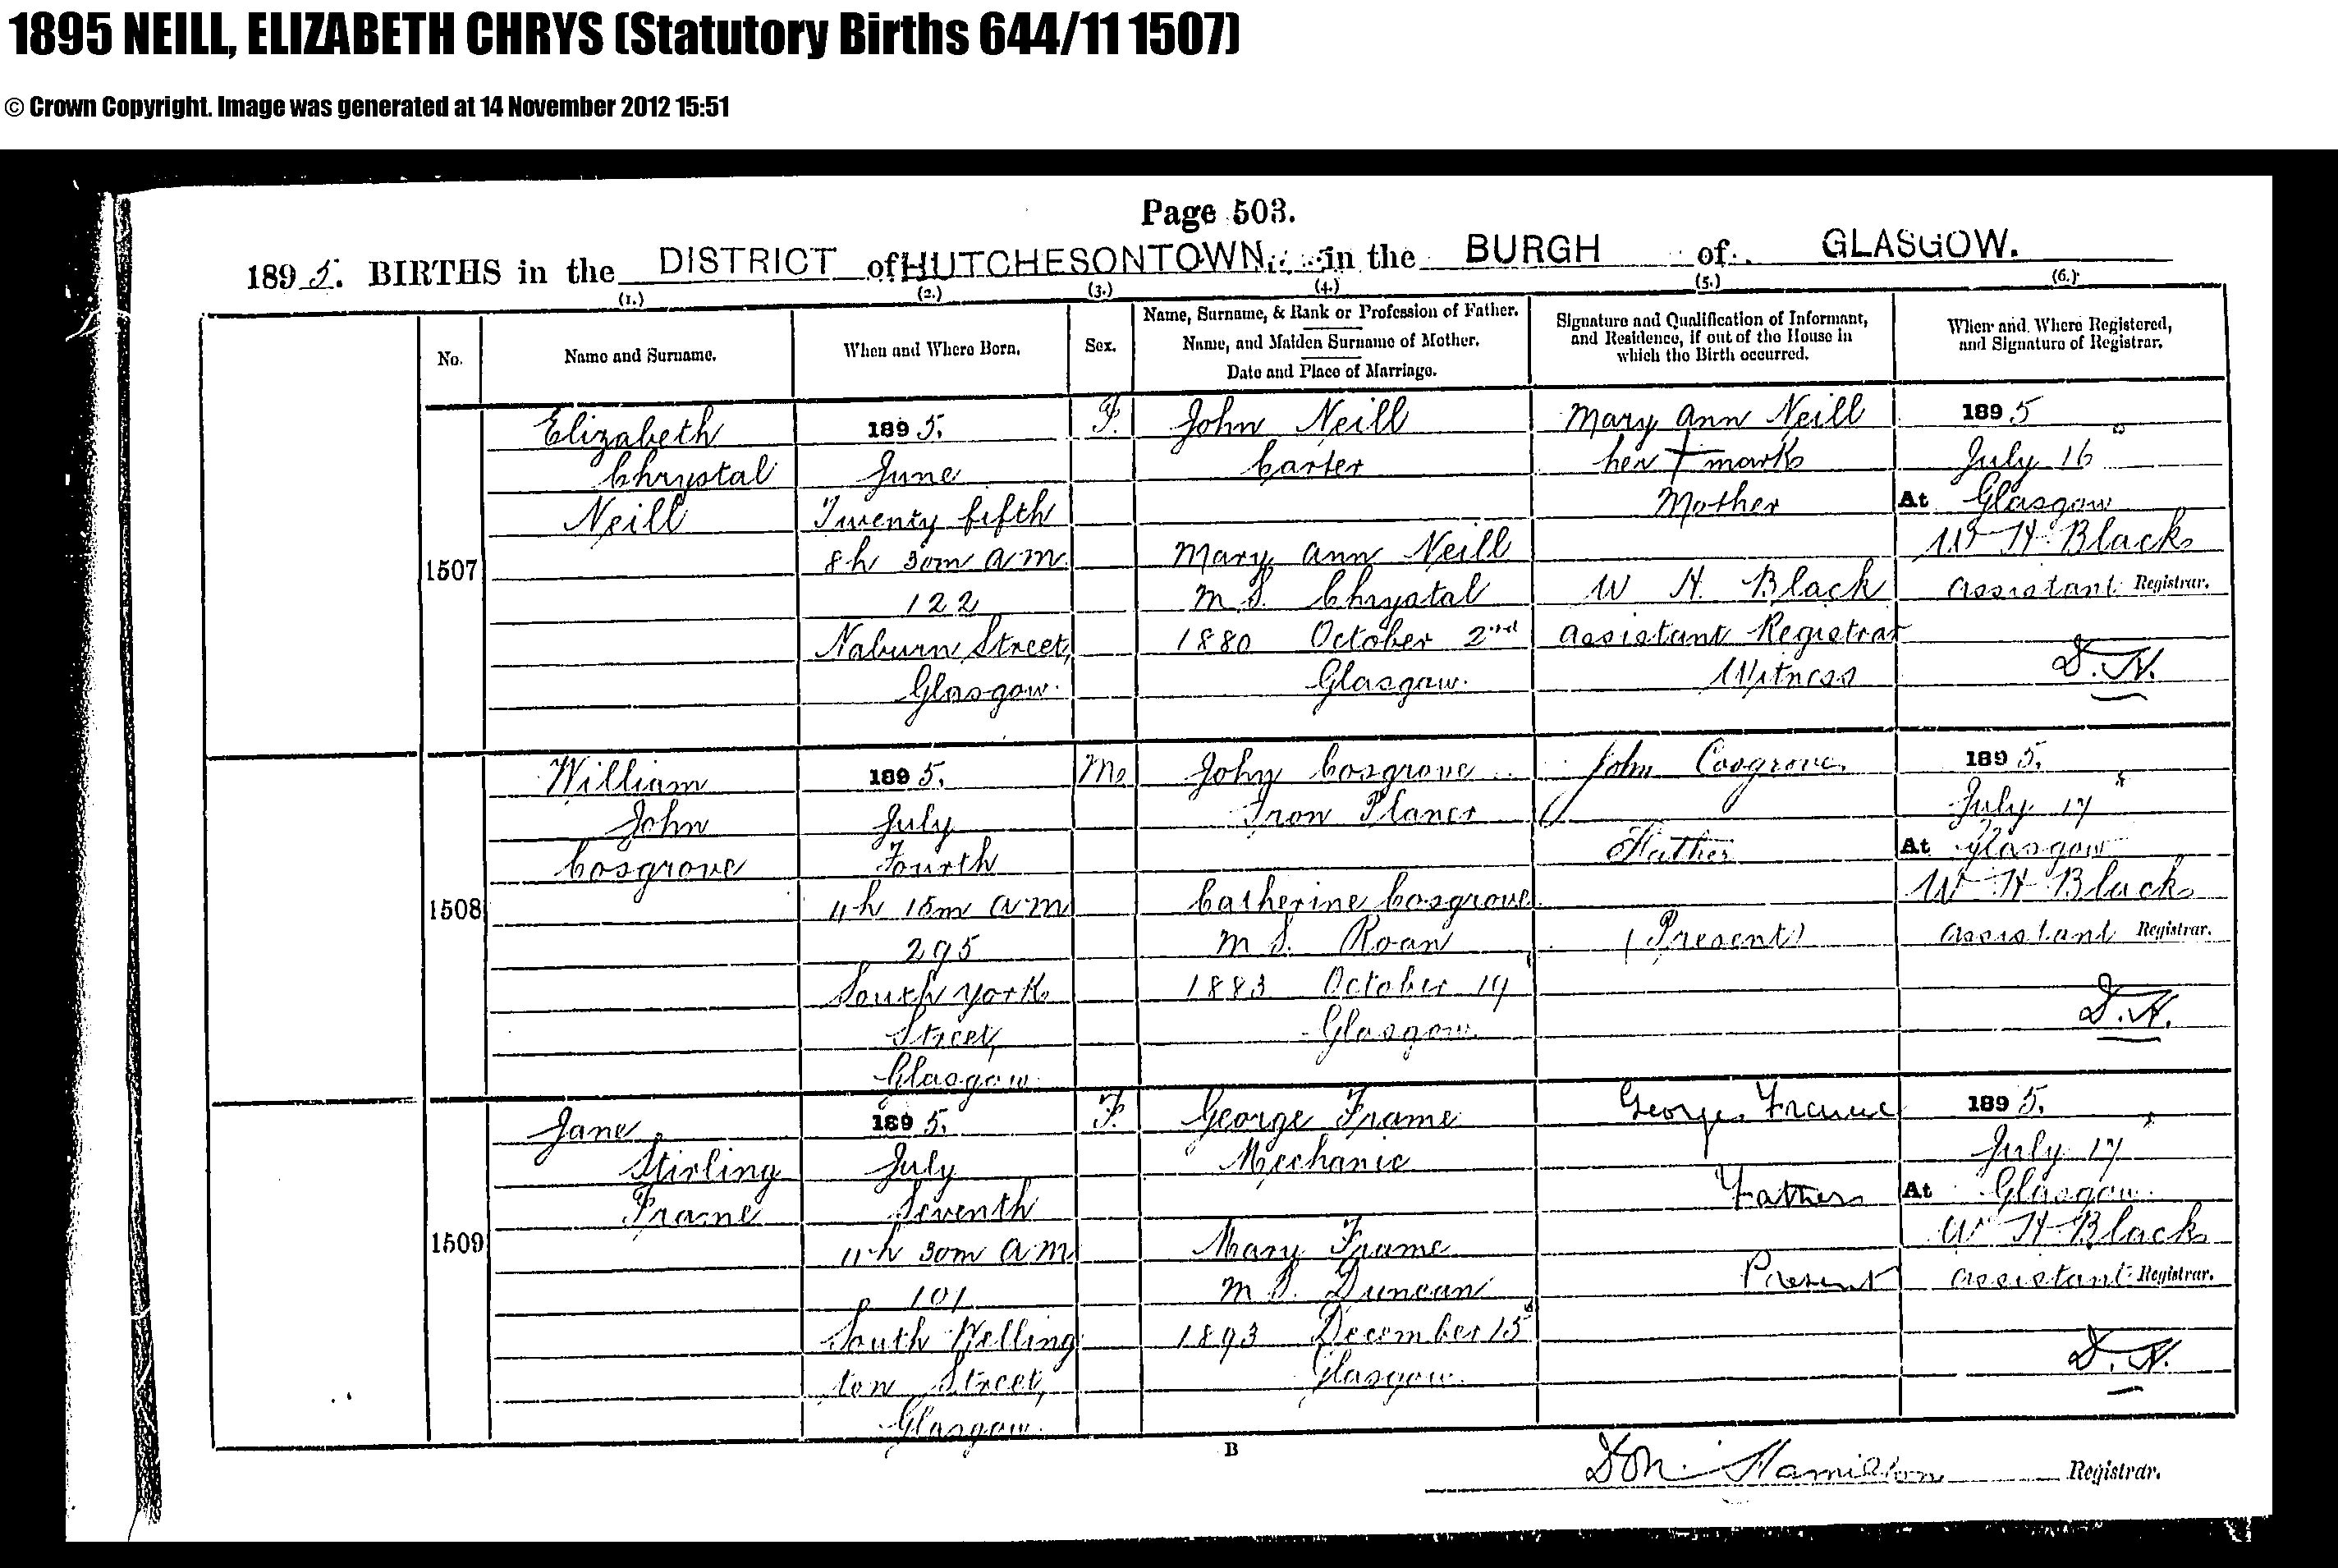 1895 NEILL, ELIZABETH CHRYS (Statutory Births 644/11 1507)
© Crown Copyright. Image was generated at 14 November 2012 15:51
Page 503.
1895. BIRTHS in the DISTRICT of HUTCHESONTOWN in the BURGH of GLASGOW.
(1.) (2.) (3.) (4.) (5.) (6.)
No.
Name and Surname.
When and Where Born.
Sex.
Name, Surname, & Rank or Profession of Father.
Name, and Maiden Surname of Mother.
Date and Place of Marriage.
Signature and Qualification of Informant,
and Residence, if out of the House in
which the Birth occurred.
When and Where Registered,
and Signature of Registrar.
1507
Elizabeth
Chrystal
Neill
1895.
June
Twenty fifth
8h 30m am
122
Naburn Street,
Glasgow.
F.
John Neill
Carter
Mary Ann Neill
M.S. Chrystal
1880 October 2nd
Glasgow.
Mary Ann Neill
her + mark
Mother
W H. Black
Assistant Registrar
Witness
1895
July 16
At Glasgow
W H Black
Assistant Registrar.
D.H.
1508
William
John
Cosgrove
1895.
July
Fourth
11h 15m am
295
South York
Street,
Glasgow.
M.
John Cosgrove
Iron Planer
Catherine Cosgrove
M S. Roan
1883 October 19
Glasgow.
John Cosgrove
Father
(Present)
1895.
July 17
At Glasgow
W H Black
Assistant Registrar.
D.H.
1509
Jane
Stirling
Frame
1895.
July
Seventh
11h 30m am
101
South Welling
ton Street,
Glasgow.
F.
George Frame
Mechanic
Mary Frame
M S. Duncan
1893 December 15
Glasgow.
George Frame
Father
Present
1895.
July 17
At Glasgow.
W H Black
Assistant Registrar.
D.H.
B
Hamilton Registrar.